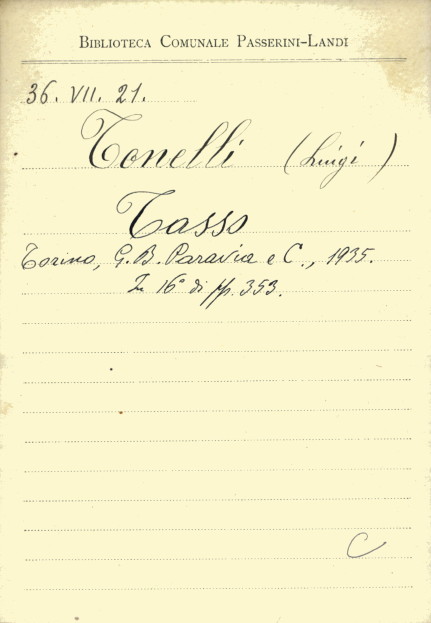 BIBLIOTECA COMUNALE PASSERINI-LANDI
36. VII. 21.
Tonelli (Luigi)
Tasso
Torino, G. B. Paravia e C., 1935.
In 16° di pp. 353.
C